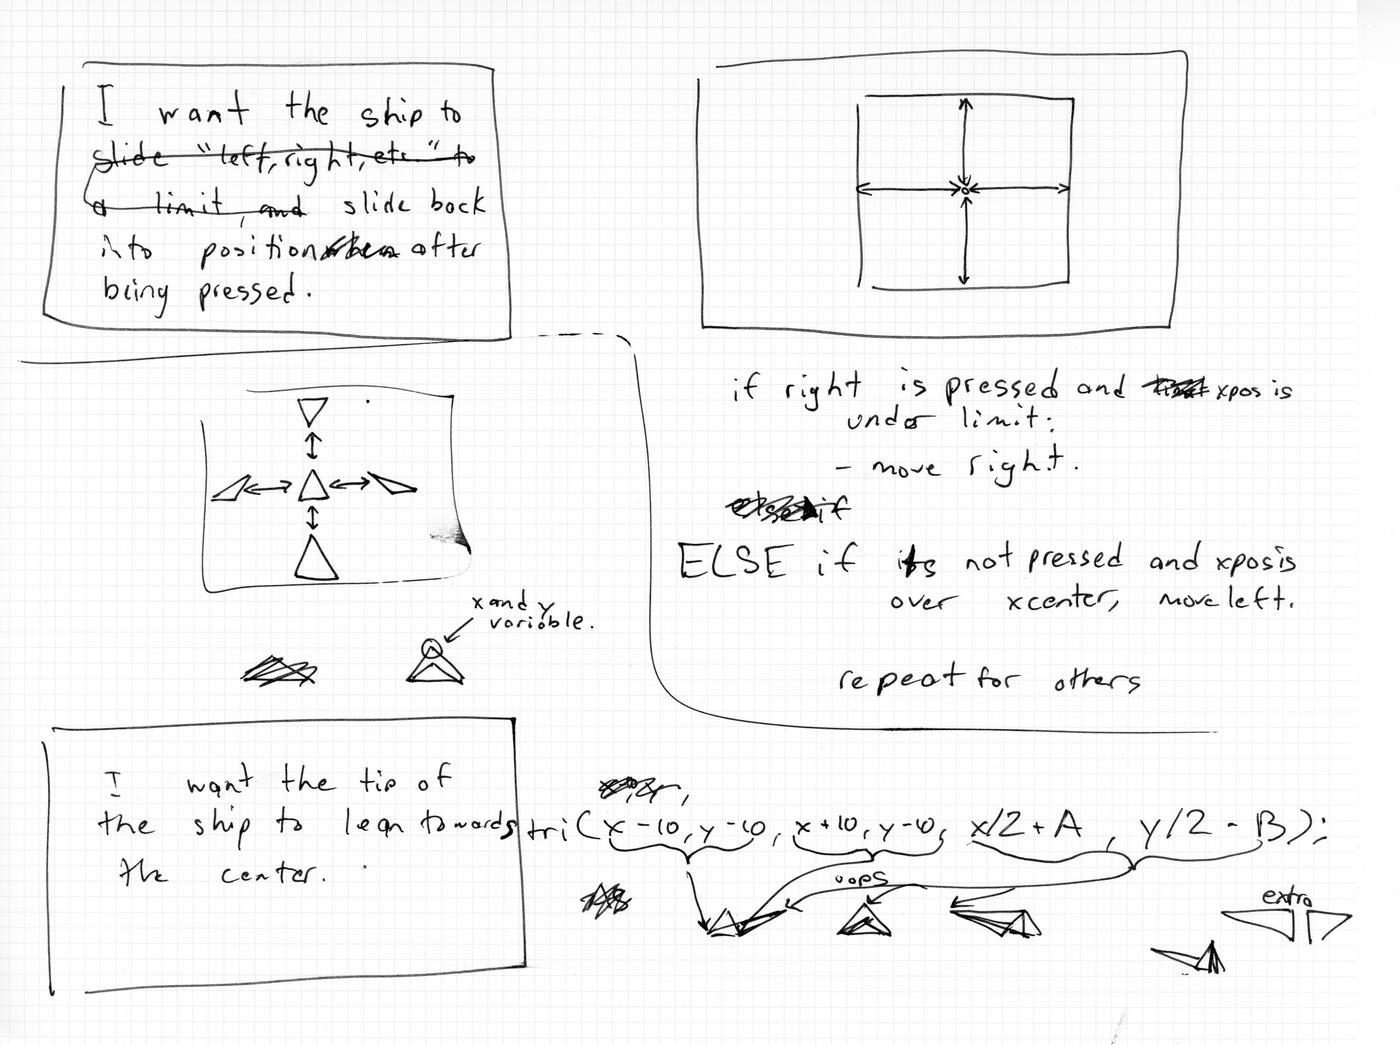 I want the ship to
slide "left, right, etc" to
a limit, and slide back
into position after
being pressed.
if right is pressed and xpos is
under limit:
- move right.
else if
ELSE if its not pressed and xpos is
over xcenter, move left.
repeat for others
x and y
variable.
I want the tip of
the ship to lean towards
the center.
tri(x-10, y-10, x+10, y-10, x/2+A, y/2-B);
oops
extra